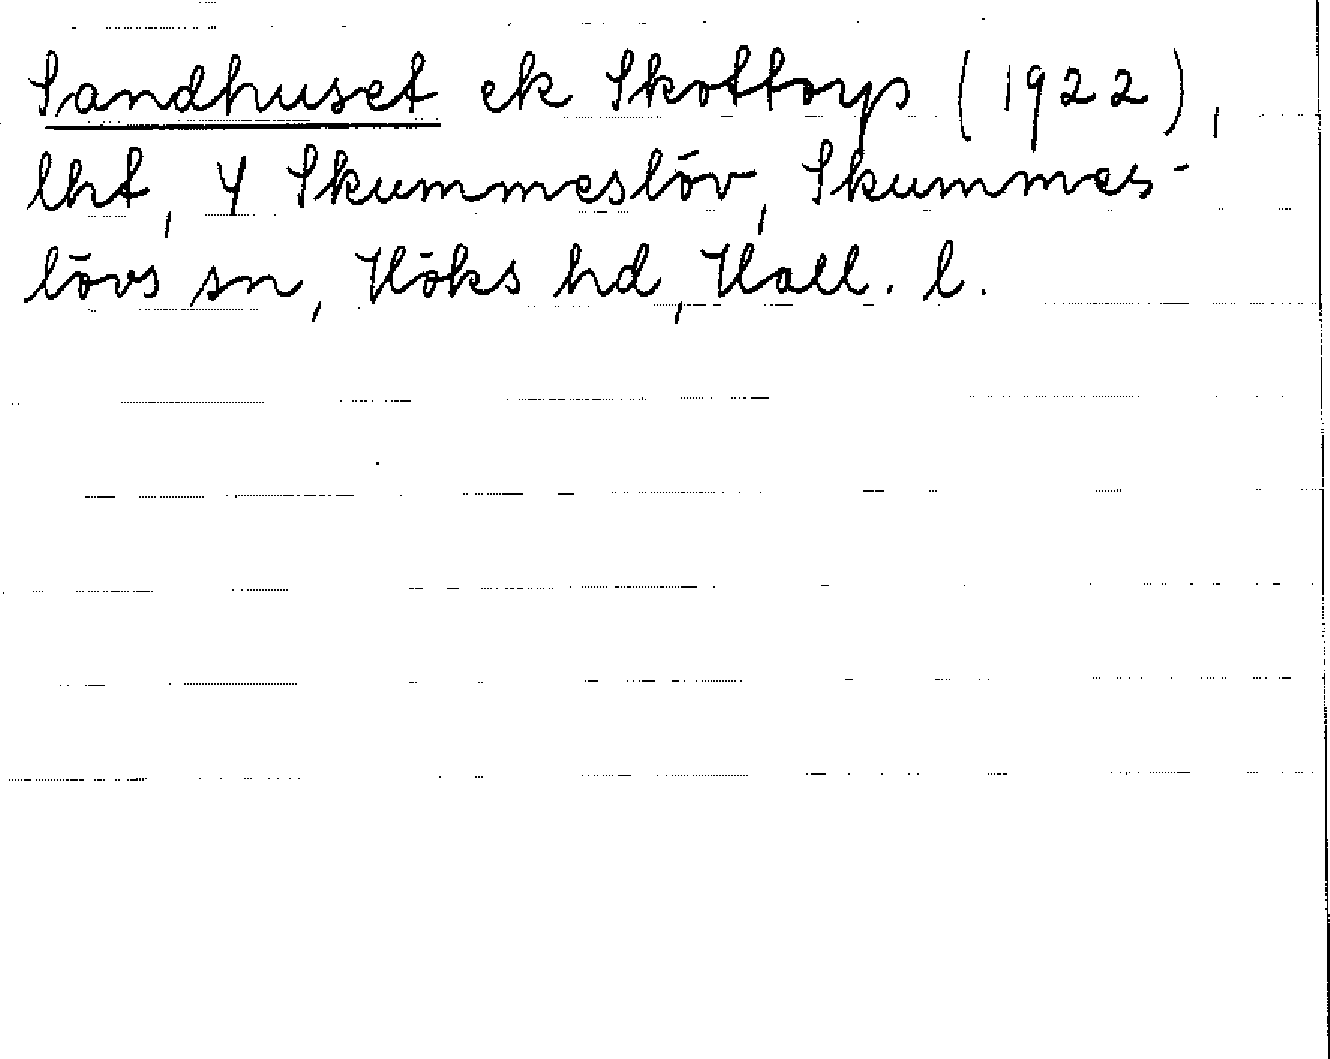 Sandhuset ek Skottorp (1922),
lht, 4 Skummeslöv, Skummes-
lövs sn, Höks hd, Hall. l.